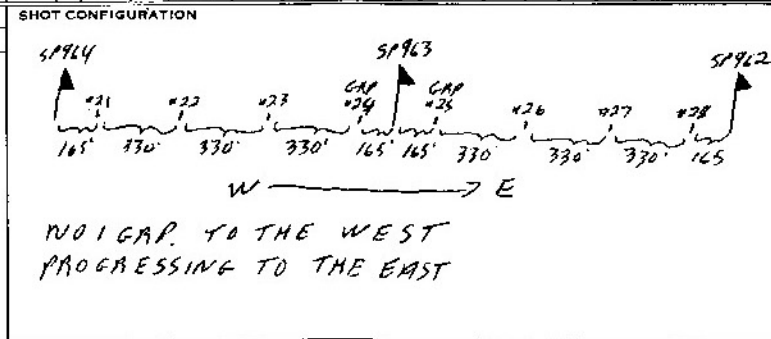 SHOT CONFIGURATION
SP964 SP963 SP962
GAP GAP
#21 #22 #23 #24 #25 #26 #27 #28
165' 330' 330' 330' 165' 165' 330' 330' 330' 165
W E
NO 1 GRP. TO THE WEST
PROGRESSING TO THE EAST